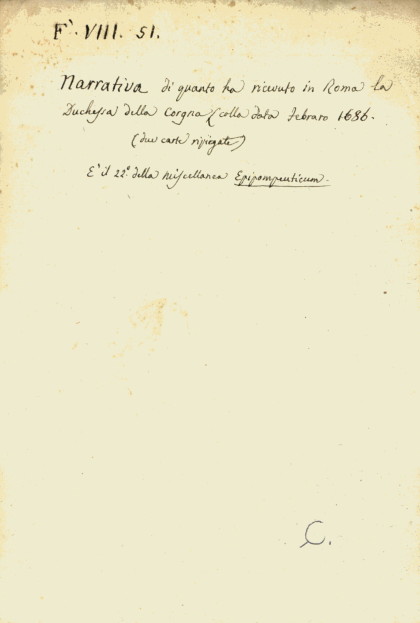 F. VIII. 51.
Narrativa di quanto ha ricevuto in Roma la
Duchessa della Corgna (colla data Febraro 1686.
(due carte ripiegate)
E' il 22.º della Miscellanea Epipompeuticum.
C.